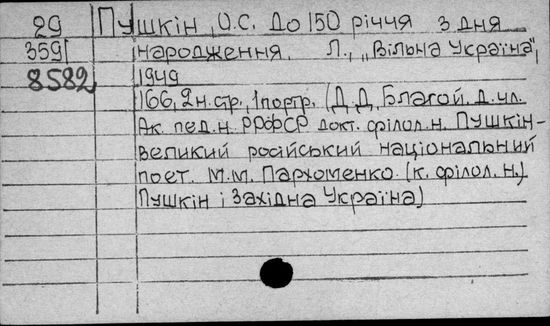 29 Пушкін, О.С. До 150 річчя з дня
359і народження. Л., „Вільна Україна",
8582 1949
166, 2н. стр., 1 портр. (Д.Д. Благой. д. чл.
Ак. пед. н. РРФСР докт. філол. н. Пушкін-
великий російський національний
поет. М.М. Пархоменко. (к. філол. н.)
Пушкін і Західна Україна)